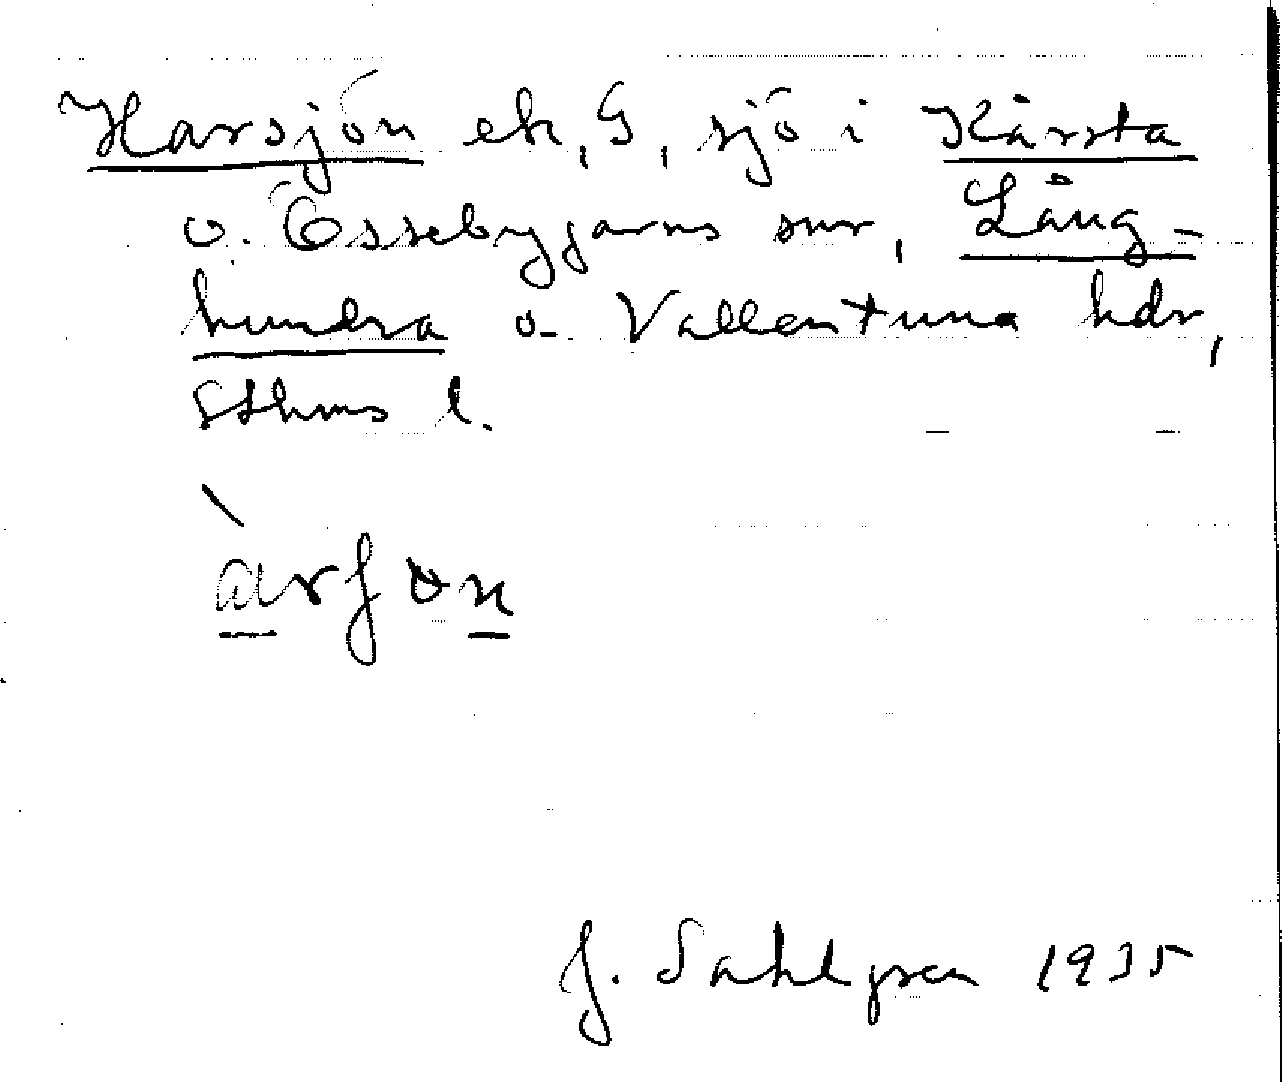 Harsjön ek, G, sjö i Kårsta
o. Össebygarns snr, Lång-
hundra o. Vallentuna hdr,
Sthms l.
J. Sahlgren 1935